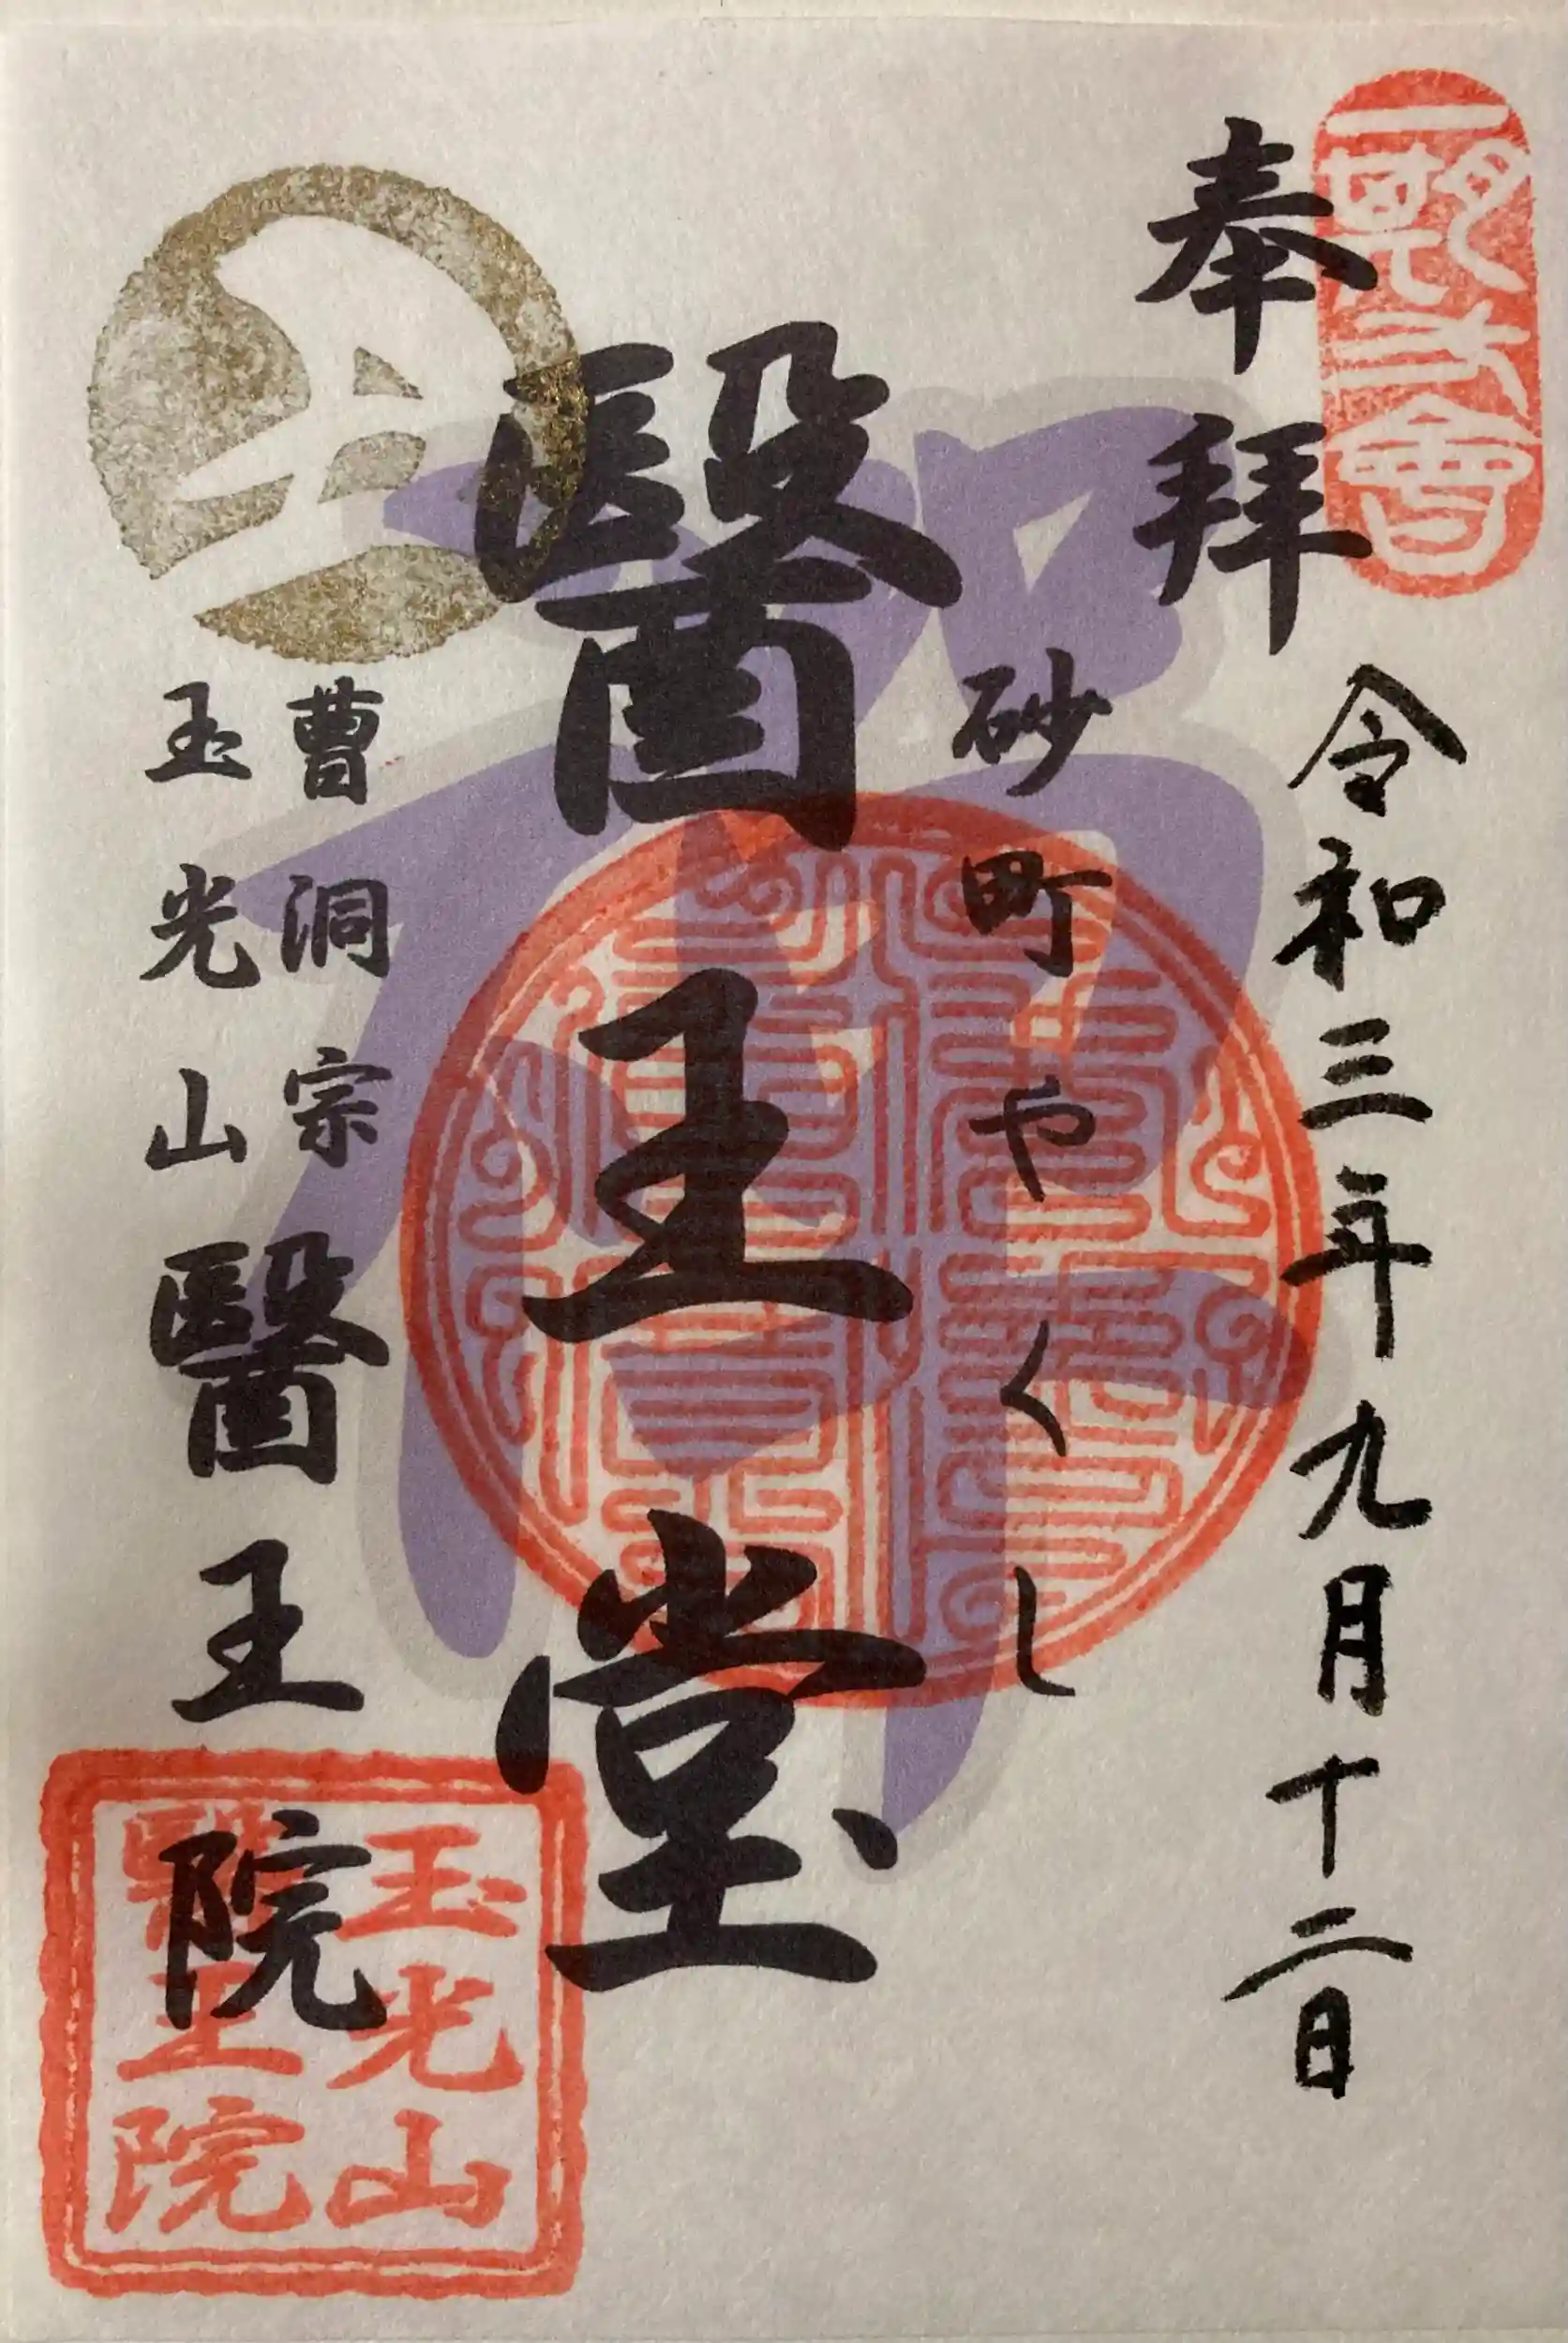 奉拝
令和三年九月十二日
砂町やくし
醫王堂
曹洞宗
玉光山
醫王院
玉光山
醫王院